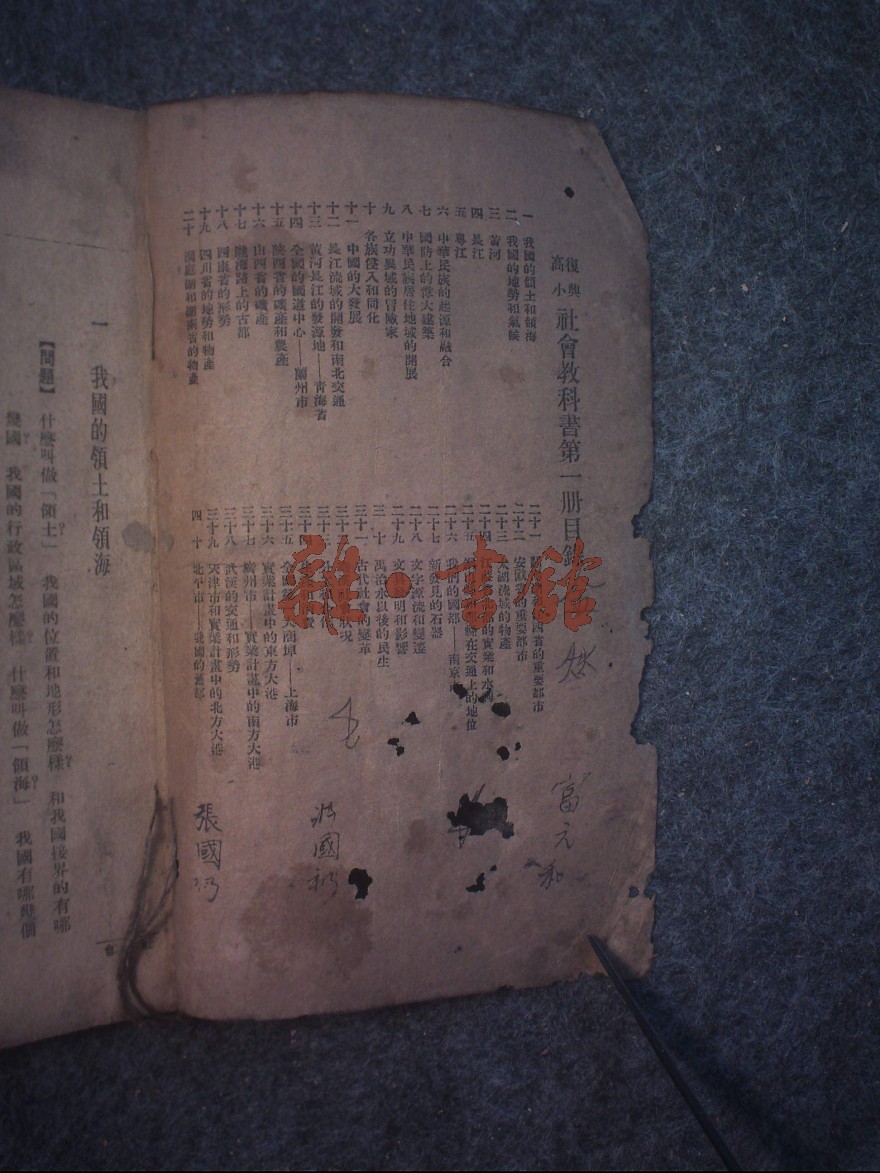 復興高小社會教科書第一册目錄
一 我國的領土和領海
二 我國的地勢和氣候
三 黃河
四 長江
五 粵江
六 中華民族的起源和融合
七 國防上的偉大建築
八 中華民族居住地域的開展
九 立功異域的冒險家
十 各族侵入和同化
十一 中國的大發展
十二 長江流域的開發和南北交通
十三 黃河長江的發源地——青海省
十四 全國的鐵道中心——蘭州市
十五 陝西省的礦產和農產
十六 山西省的礦產
十七 隴海路上的古都
十八 四川省的形勢
十九 四川省的地勢和物產
二十 洞庭湖和湖南省的物產
二十一 西省的重要都市
二十二 安 的重要都市
二十三 流域的物產
二十四 的實業和水利
二十五 在交通上的地位
二十六 我們的國都——南京市
二十七 新發見的石器
二十八 文字源流和變遷
二十九 文 明和影響
三十 禹治水以後的民生
三十一 古代社會的變革
三十二 狀況
三十三
三十四
三十五 全國 大商埠——上海市
三十六 實業計畫中的東方大港
三十七 廣州市——實業計畫中的南方大港
三十八 武漢的交通和形勢
三十九 天津市和實業計畫中的北方大港
四十 北平市——我國的舊都
富元和
國
張國
雜·書館
一 我國的領土和領海
【問題】 什麼叫做「領土」? 我國的位置和地形怎麼樣? 和我國接界的有哪
幾國? 我國的行政區域怎麼樣? 什麼叫做「領海」? 我國有哪幾個